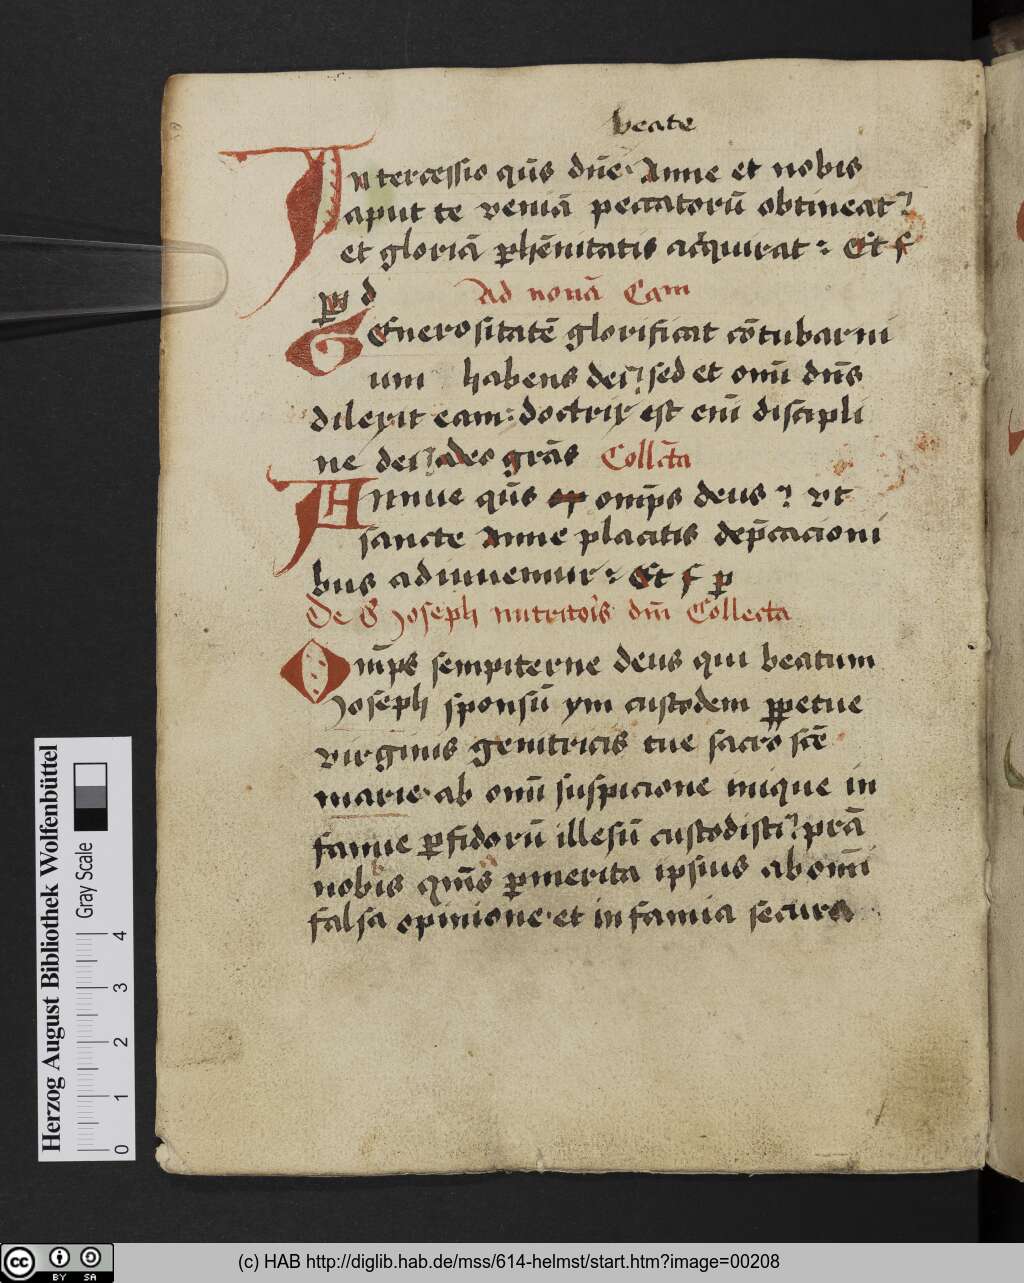 beate
Intercessio qūs dn̄e Anne et nobis
aput te veniā peccatorū obtineat?
et gloriā ꝑhēnitatis acq̄uirat : Et f
d Ad nonā Cam
GEnerositatē glorificat cōtubarni
um habens dei? sed et omī dn̄s
dilexit eam : doctrix est enī discipli
ne dei? adeo grās Collc̄ta
Annue qūs om̄ps deus ? vt
sancte Anne placitis dep̄cacioni
bus adiuuemur : Et f ꝑ
De S Joseph nutritoris dn̄i Collecta
Om̄ps sempiterne deus qui beatum
Joseph sponsū ym custodem ꝑpetue
virginis genitricis tue sacro scē
marie ab omī suspicione inique in
famie ꝑfidorū illesū custodisti? prā
nobis qm̄s ꝑ merita ipsius ab omī
falsa opinione et infamia secura
Herzog August Bibliothek Wolfenbüttel
Gray Scale
0 1 2 3 4
cc BY SA
(c) HAB http://diglib.hab.de/mss/614-helmst/start.htm?image=00208